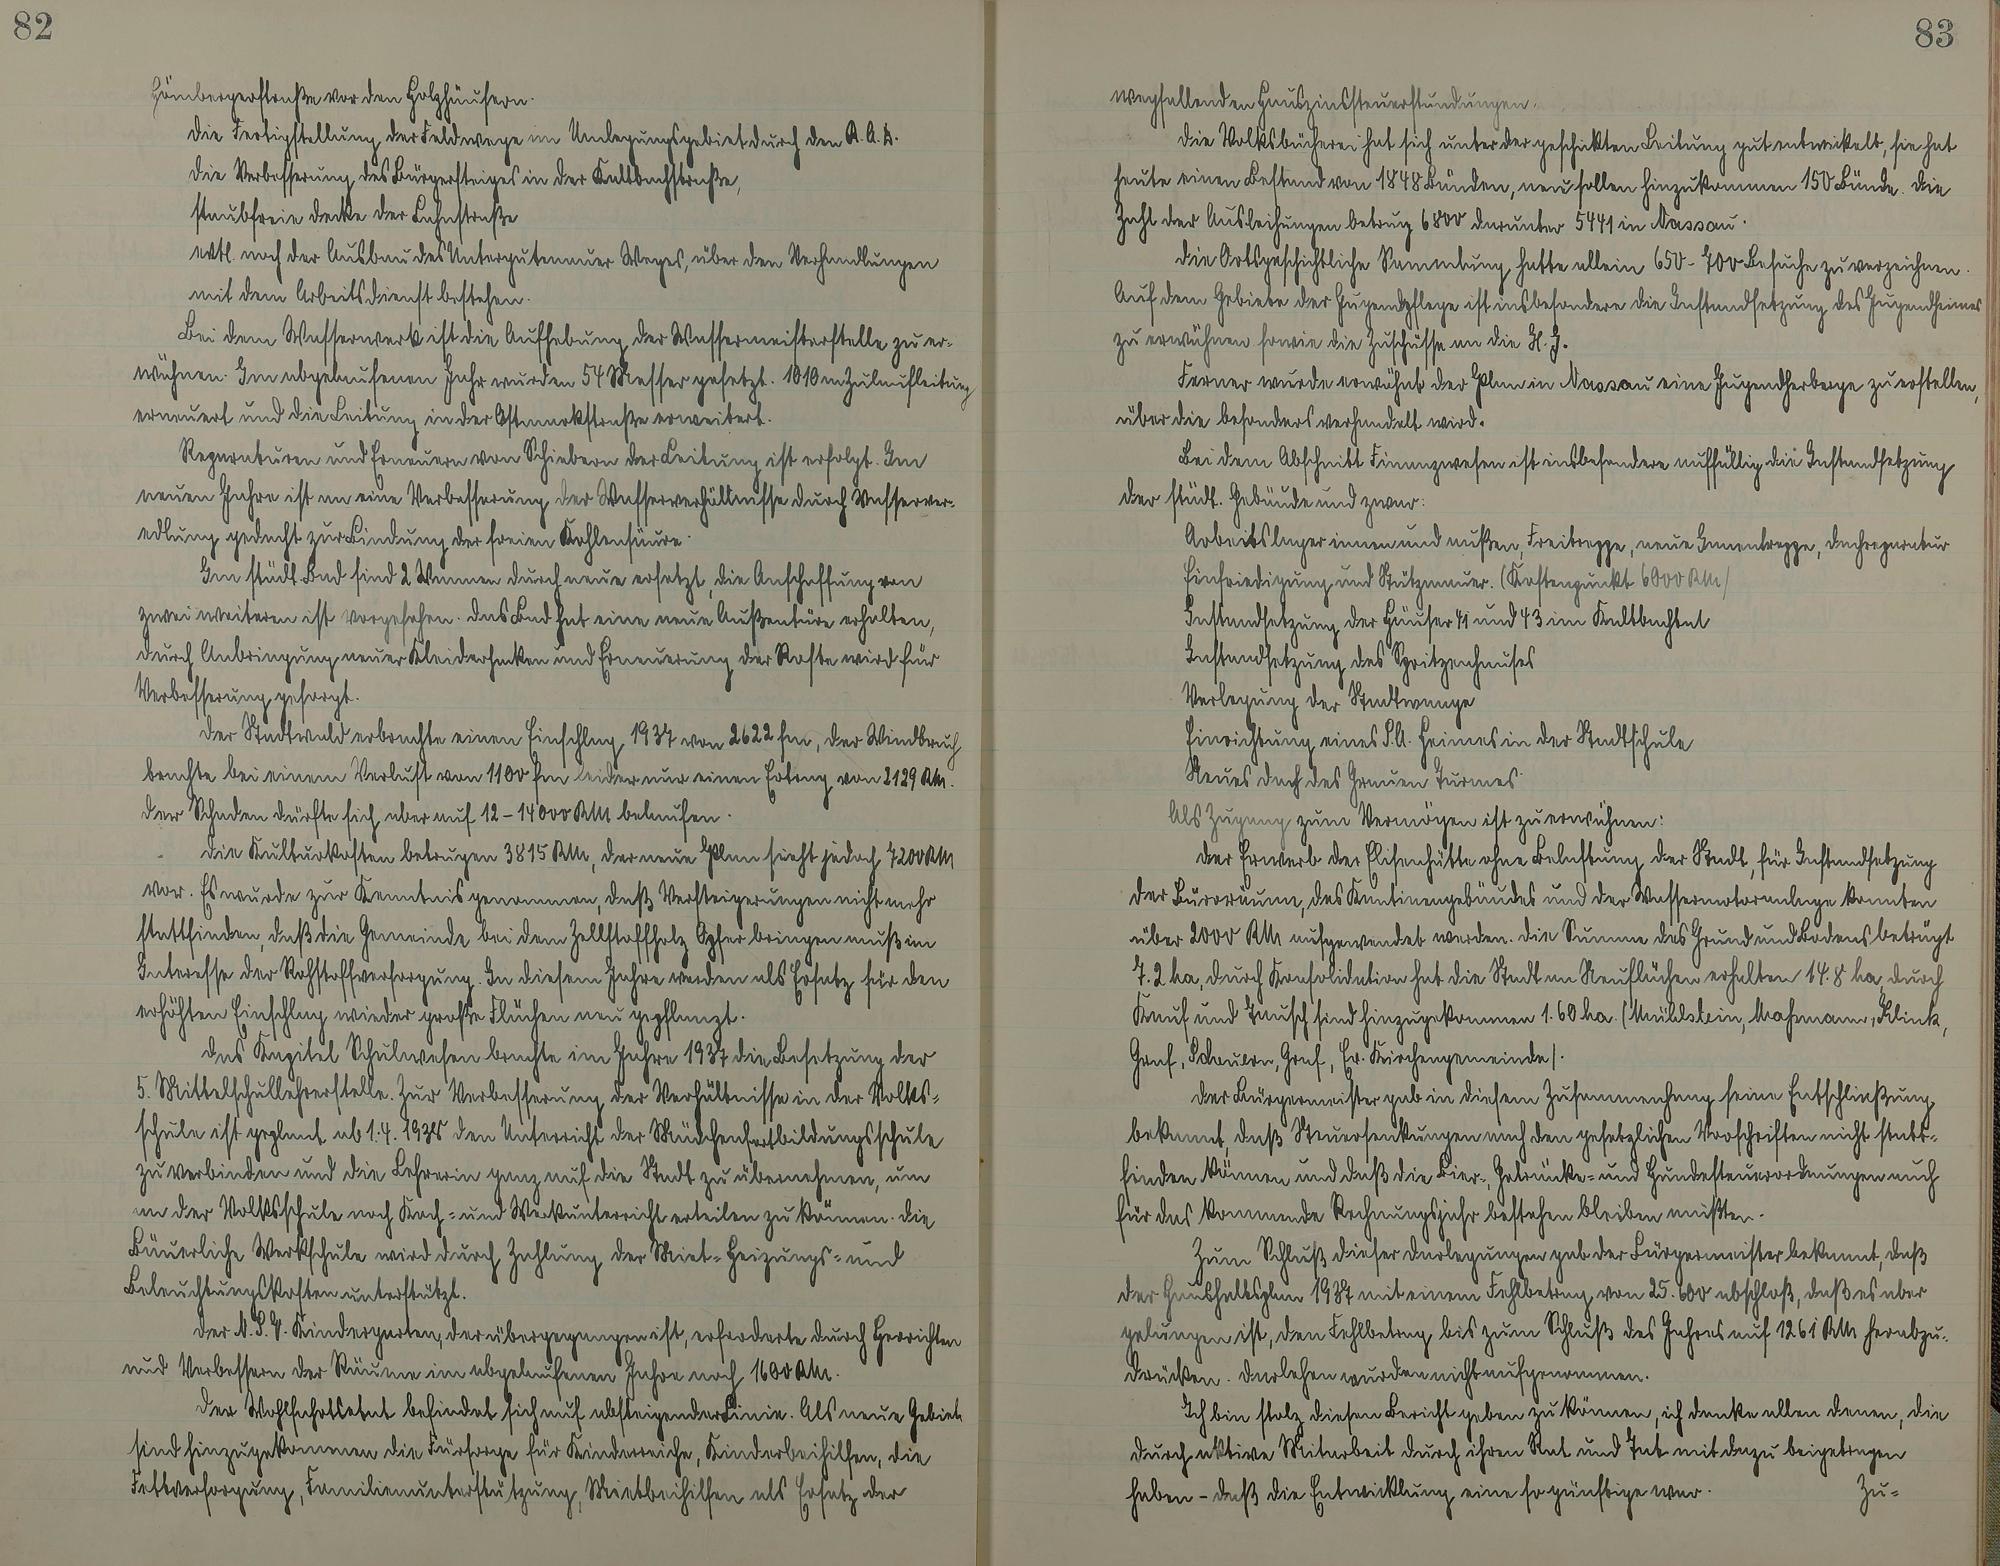 82
Hömbergerstraße vor den Holzhäusern.
die Fertigstellung der Feldwege im Umlegungsgebiet durch den R.A.D.
die Verbesserung des Bürgersteiges in der Kaltbachstraße,
staubfreie Decke der Lahnstraße
evtl. noch der Ausbau des Untergutenauer Weges, über den Verhandlungen
mit dem Arbeitsdienst bestehen.
Bei dem Wasserwerk ist die Aufhebung der Wassermeisterstelle zu er-
wähnen. Im abgelaufenen Jahr wurden 54 Messer gesetzt. 1010 m Zulaufleitung
erneuert und die Leitung in der Ostmarkstraße erweitert.
Reparaturen und Erneuern von Schiebern der Leitung ist erfolgt. Im
neuen Jahre ist an eine Verbesserung der Wasserverhältnisse durch Wasserver-
edlung gedacht zur Bindung der freien Kohlensäure.
Im städt. Bad sind 2 Wannen durch neue ersetzt, die Anschaffung von
zwei weiteren ist vorgesehen. das Bad hat eine neue Außentüre erhalten,
durch Anbringung neuer Kleiderhaken und Erneuerung der Roste wird für
Verbesserung gesorgt.
der Stadtwald erbrachte einen Einschlag 1937 von 2622 fm, der Windbruch
brachte bei einem Verlust von 1100 fm leider nur einen Ertrag von 2129 RM.
der Schaden dürfte sich aber auf 12-14000 RM belaufen.
die Kulturkosten betrugen 3815 RM, der neue Plan sieht jedoch 7200 RM
vor. Es wurde zur Kenntnis genommen, daß Versteigerungen nicht mehr
stattfinden, daß die Gemeinde bei dem Zellstoffholz Opfer bringen muß im
Interesse der Rohstoffversorgung. In diesem Jahre werden als Ersatz für den
erhöhten Einschlag wieder große Flächen neu gepflanzt.
das Kapitel Schulwesen brachte im Jahre 1937 die Besetzung der
5. Mittelschullehrerstelle. Zur Verbesserung der Verhältnisse in der Volks-
schule ist geplant ab 1.4.1938 den Unterricht der Mädchenfortbildungsschule
zu verbinden und die Lehrerin ganz auf die Stadt zu übernehmen, um
an der Volksschule noch Koch- und Werkunterricht erteilen zu können. die
Bäuerliche Werkschule wird durch Zahlung der Miet- Heizungs- und
Beleuchtungskosten unterstützt.
der N.S.V. Kindergarten, der übergegangen ist, erforderte durch Herrichten
und Verbessern der Räume im abgelaufenen Jahre noch 1600 RM.
der Wohlfahrtsetat befindet sich auf absteigender Linie. Als neue Gebiete
sind hinzugekommen die Fürsorge für Kinderreiche, Kinderbeihilfen, die
Fettversorgung, Familienunterstützung, Mietbeihilfen als Ersatz der
83
wegfallenden Hauszinssteuerstundungen.
die Volksbücherei hat sich unter der geschickten Leitung gut entwickelt, sie hat
heute einen Bestand von 1848 Bänden, neu sollen hinzukommen 150 Bände. die
Zahl der Ausleihungen betrug 6800 darunter 5441 in Nassau.
die Ortsgeschichtliche Sammlung hatte allein 650-700 Besuche zu verzeichnen.
Auf dem Gebiete der Jugendpflege ist insbesondere die Instandsetzung des Jugendheimes
zu erwähnen sowie die Zuschüsse an die H.J.
Ferner wurde erwähnt der Plan in Nassau eine Jugendherberge zu erstellen,
über die besonders verhandelt wird.
Bei dem Abschnitt Finanzwesen ist insbesondere auffällig die Instandsetzung
der städt. Gebäude und zwar:
Arbeitslager innen und außen, Freitreppe, neue Innentreppe, dachreparatur
Einfriedigung und Stützmauer. (Kostenpunkt 6000 RM)
Instandsetzung der Häuser 41 und 43 im Kaltbachtal
Instandsetzung des Spritzenhauses
Verlegung der Stadtwaage
Einrichtung eines S.A. Heimes in der Stadtschule
Neues dach des Grauen Turmes.
Als Zugang zum Vermögen ist zu erwähnen:
der Erwerb der Elisenhütte ohne Belastung der Stadt, für Instandsetzung
der Büroräume, des Kantinengebäudes und der Wassermotoranlage konnten
über 2000 RM aufgewendet werden. die Summe des Grund und Bodens beträgt
7.2 ha, durch Konsolidation hat die Stadt an Neuflächen erhalten 14.8 ha, durch
Kauf und Tausch sind hinzugekommen 1.60 ha. (Mühlstein, Klink,
Graf, Scheuern, Graf, Ev. Kirchengemeinde).
der Bürgermeister gab in diesem Zusammenhang seine Entschließung
bekannt, daß Steuersenkungen nach den gesetzlichen Vorschriften nicht statt-
finden können und daß die Bier-, Getränke- und Hundesteuerordnungen auch
für das kommende Rechnungsjahr bestehen bleiben müßten.
Zum Schluß dieser darlegungen gab der Bürgermeister bekannt, daß
der Haushaltsplan 1937 mit einem Fehlbetrag von 25.600 abschloß, daß es aber
gelungen ist, den Fehlbetrag bis zum Schluß des Jahres auf 1261 RM herabzu-
drücken. darlehen wurden nicht aufgenommen.
Ich bin stolz diesen Bericht geben zu können, ich danke allen denen, die
durch aktive Mitarbeit durch ihren Rat und Tat mit dazu beigetragen
haben - daß die Entwicklung eine so günstige war. Zu-